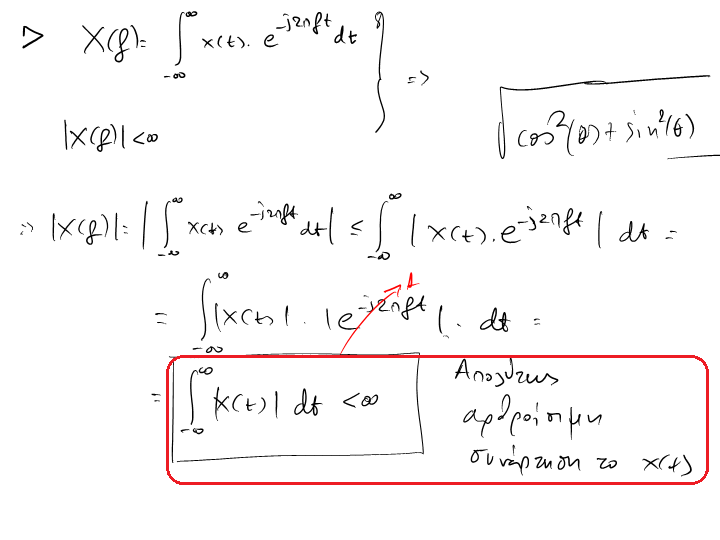 > X(f) = ∫_{-∞}^{∞} x(t). e^{-j2πft} dt } =>
|X(f)| < ∞
√(cos²(θ) + sin²(θ))
=> |X(f)| = |∫_{-∞}^{∞} x(t) e^{-j2πft} dt| ≤ ∫_{-∞}^{∞} | x(t). e^{-j2πft} | dt =
= ∫_{-∞}^{∞} |x(t)| . |e^{-j2πft}| . dt =
1
= ∫_{-∞}^{∞} |x(t)| dt < ∞
Απολύτως
αθροίσιμη
συνάρτηση το x(t)